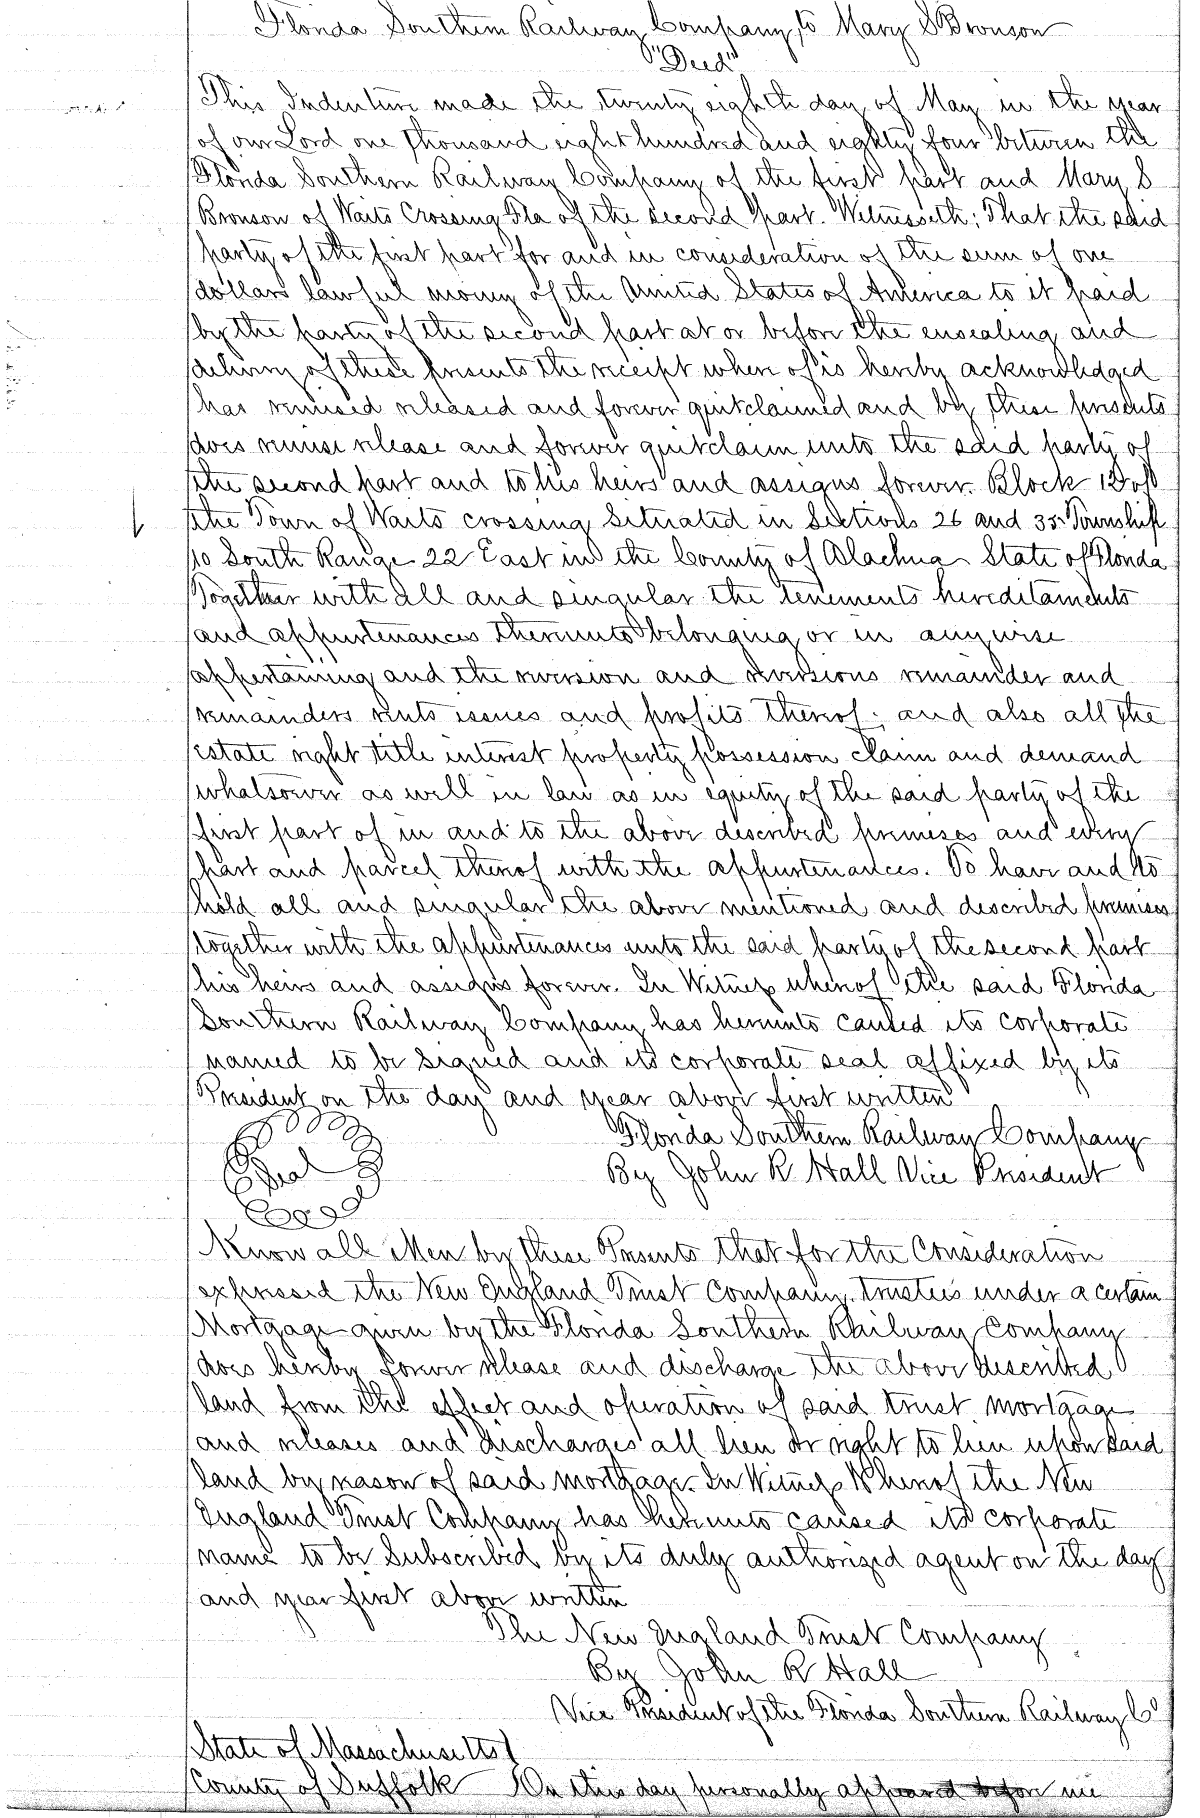 Florida Southern Railway Company, to Mary S Bronson
"Deed"
This Indenture made the twenty eighth day of May in the year
of our Lord one thousand eight hundred and eighty four between the
Florida Southern Railway Company of the first part and Mary S
Bronson of Waits Crossing Fla of the second part. Witnesseth; That the said
party of the first part for and in consideration of the sum of one
dollars lawful money of the United States of America to it paid
by the party of the second part at or before the ensealing and
delivery of these presents the receipt where of is hereby acknowledged
has remised released and forever quitclaimed and by these presents
does remise release and forever quitclaim unto the said party of
the second part and to his heirs and assigns forever. Block 12 of
the Town of Waits crossing Situated in Sections 26 and 35 Township
10 South Range 22 East in the County of Alachua State of Florida
Together with all and singular the tenements hereditaments
and appurtenances thereunto belonging or in anywise
appertaining and the reversion and reversions remainder and
remainders rents issues and profits thereof; and also all the
estate right title interest property possession claim and demand
whatsoever as well in law as in equity of the said party of the
first part of in and to the above described premises and every
part and parcel thereof with the appurtenances. To have and to
hold all and singular the above mentioned and described premises
together with the appurtenances unto the said party of the second part
his heirs and assigns forever. In Witness whereof the said Florida
Southern Railway Company has hereunto caused its corporate
named to be signed and its corporate seal affixed by its
President on the day and year above first written
Florida Southern Railway Company
Seal By John R Hall Vice President
Know all Men by these Presents that for the Consideration
expressed the New England Trust Company, trustees under a certain
Mortgage given by the Florida Southern Railway Company
does hereby forever release and discharge the above described
land from the effect and operation of said trust mortgage
and releases and discharges all lien or right to lien upon said
land by reason of said mortgage. In Witness Whereof the New
England Trust Company has hereunto caused its corporate
name to be Subscribed by its duly authorized agent on the day
and year first above written
The New England Trust Company
By John R Hall
Vice President of the Florida Southern Railway Co
State of Massachusetts
County of Suffolk On this day personally appeared before me